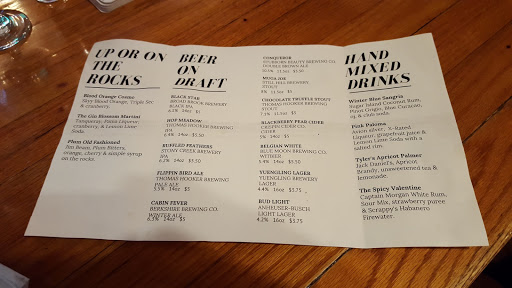 UP OR ON
THE
ROCKS
Blood Orange Cosmo
Skyy Blood Orange, Triple Sec
& cranberry.
The Gin Blossom Martini
Tanqueray, Hana Liqueur,
cranberry, & Lemon Lime
Soda.
Plum Old Fashioned
Jim Beam, Plum Bitters,
orange, cherry & simple syrup
on the rocks.
BEER
ON
DRAFT
BLACK STAR
BROAD BROOK BREWERY
BLACK IPA
6.2% 14oz $5
HOP MEADOW
THOMAS HOOKER BREWING
IPA
6.4% 14oz $5.50
BUFFLED FEATHERS
STONY CREEK BREWERY
IPA
6.2% 14oz $5.50
FLIPPIN BIRD ALE
THOMAS HOOKER BREWING
PALE ALE
5.5% 14oz $5
CABIN FEVER
BERKSHIRE BREWING CO.
WINTER ALE
6.3% 14oz $5
CONQUEROR
STUBBORN BEAUTY BREWING CO.
DOUBLE BROWN ALE
10.1% 11.5oz $5.50
MOCA JOE
STILL HILL BREWERY
STOUT
5% 11.5oz $5
CHOCOLATE TRUFFLE STOUT
THOMAS HOOKER BREWING
STOUT
7.1% 11.5oz $5
BLACKBERRY PEAR CIDER
CRISPIN CIDER CO.
CIDER
5% 14oz $5
BELGIAN WHITE
BLUE MOON BREWING CO.
WITBIER
5.4% 14oz $5.50
YUENGLING LAGER
YUENGLING BREWERY
LAGER
4.4% 14oz $3.75
BUD LIGHT
ANHEUSER-BUSCH
LIGHT LAGER
4.2% 16oz $3.75
HAND
MIXED
DRINKS
Winter Blue Sangria
Sugar Island Coconut Rum,
Pinot Grigio, Blue Curacao,
oj, & club soda.
Pink Paloma
Avion silver, X-Rated
Liqueur, grapefruit juice &
Lemon Lime Soda with a
salted rim.
Tyler's Apricot Palmer
Jack Daniel's, Apricot
Brandy, unsweetened tea &
lemonade.
The Spicy Valentine
Captain Morgan White Rum,
Sour Mix, strawberry puree
& Scrappy's Habanero
Firewater.